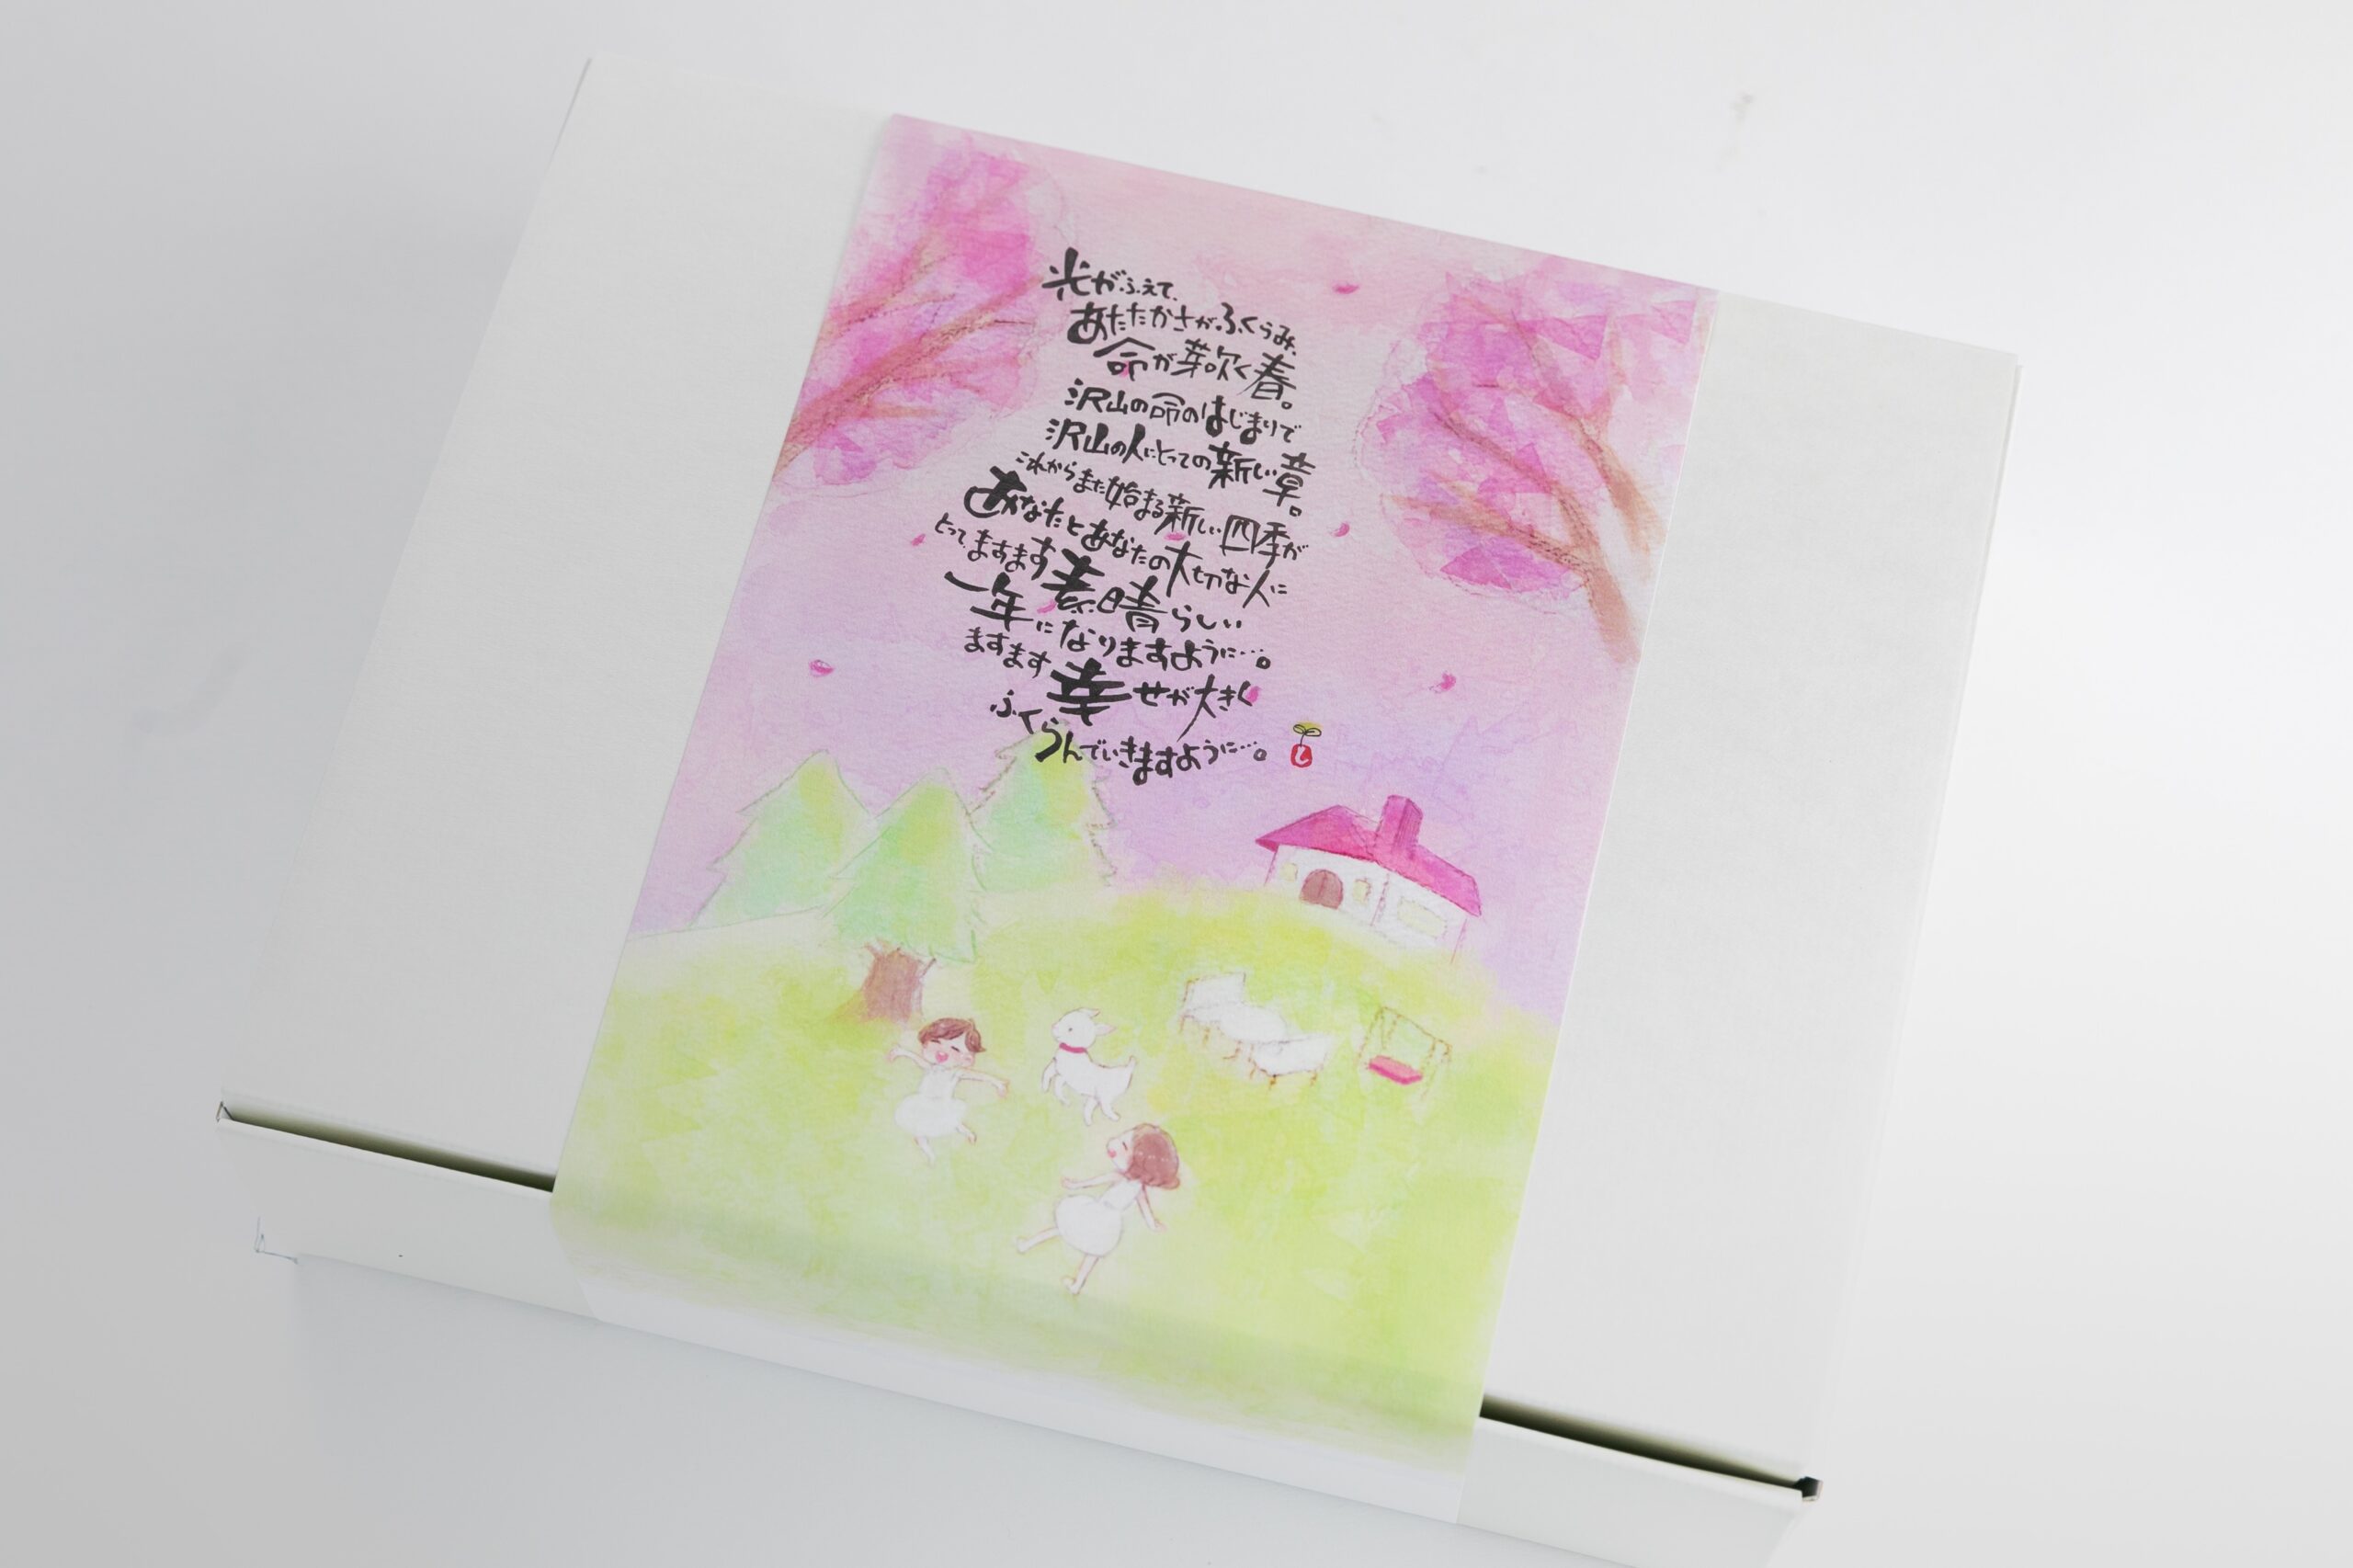 光がふえて、
あたたかさがふくらみ、
命が芽吹く春。
沢山の命のはじまりで
沢山の人にとっての新しい章。
これからまた始まる新しい四季が
あなたとあなたの大切な人に
とって、ますます素晴らしい
一年になりますように…。
ますます幸せが大きく
ふくらんでいきますように…。
し